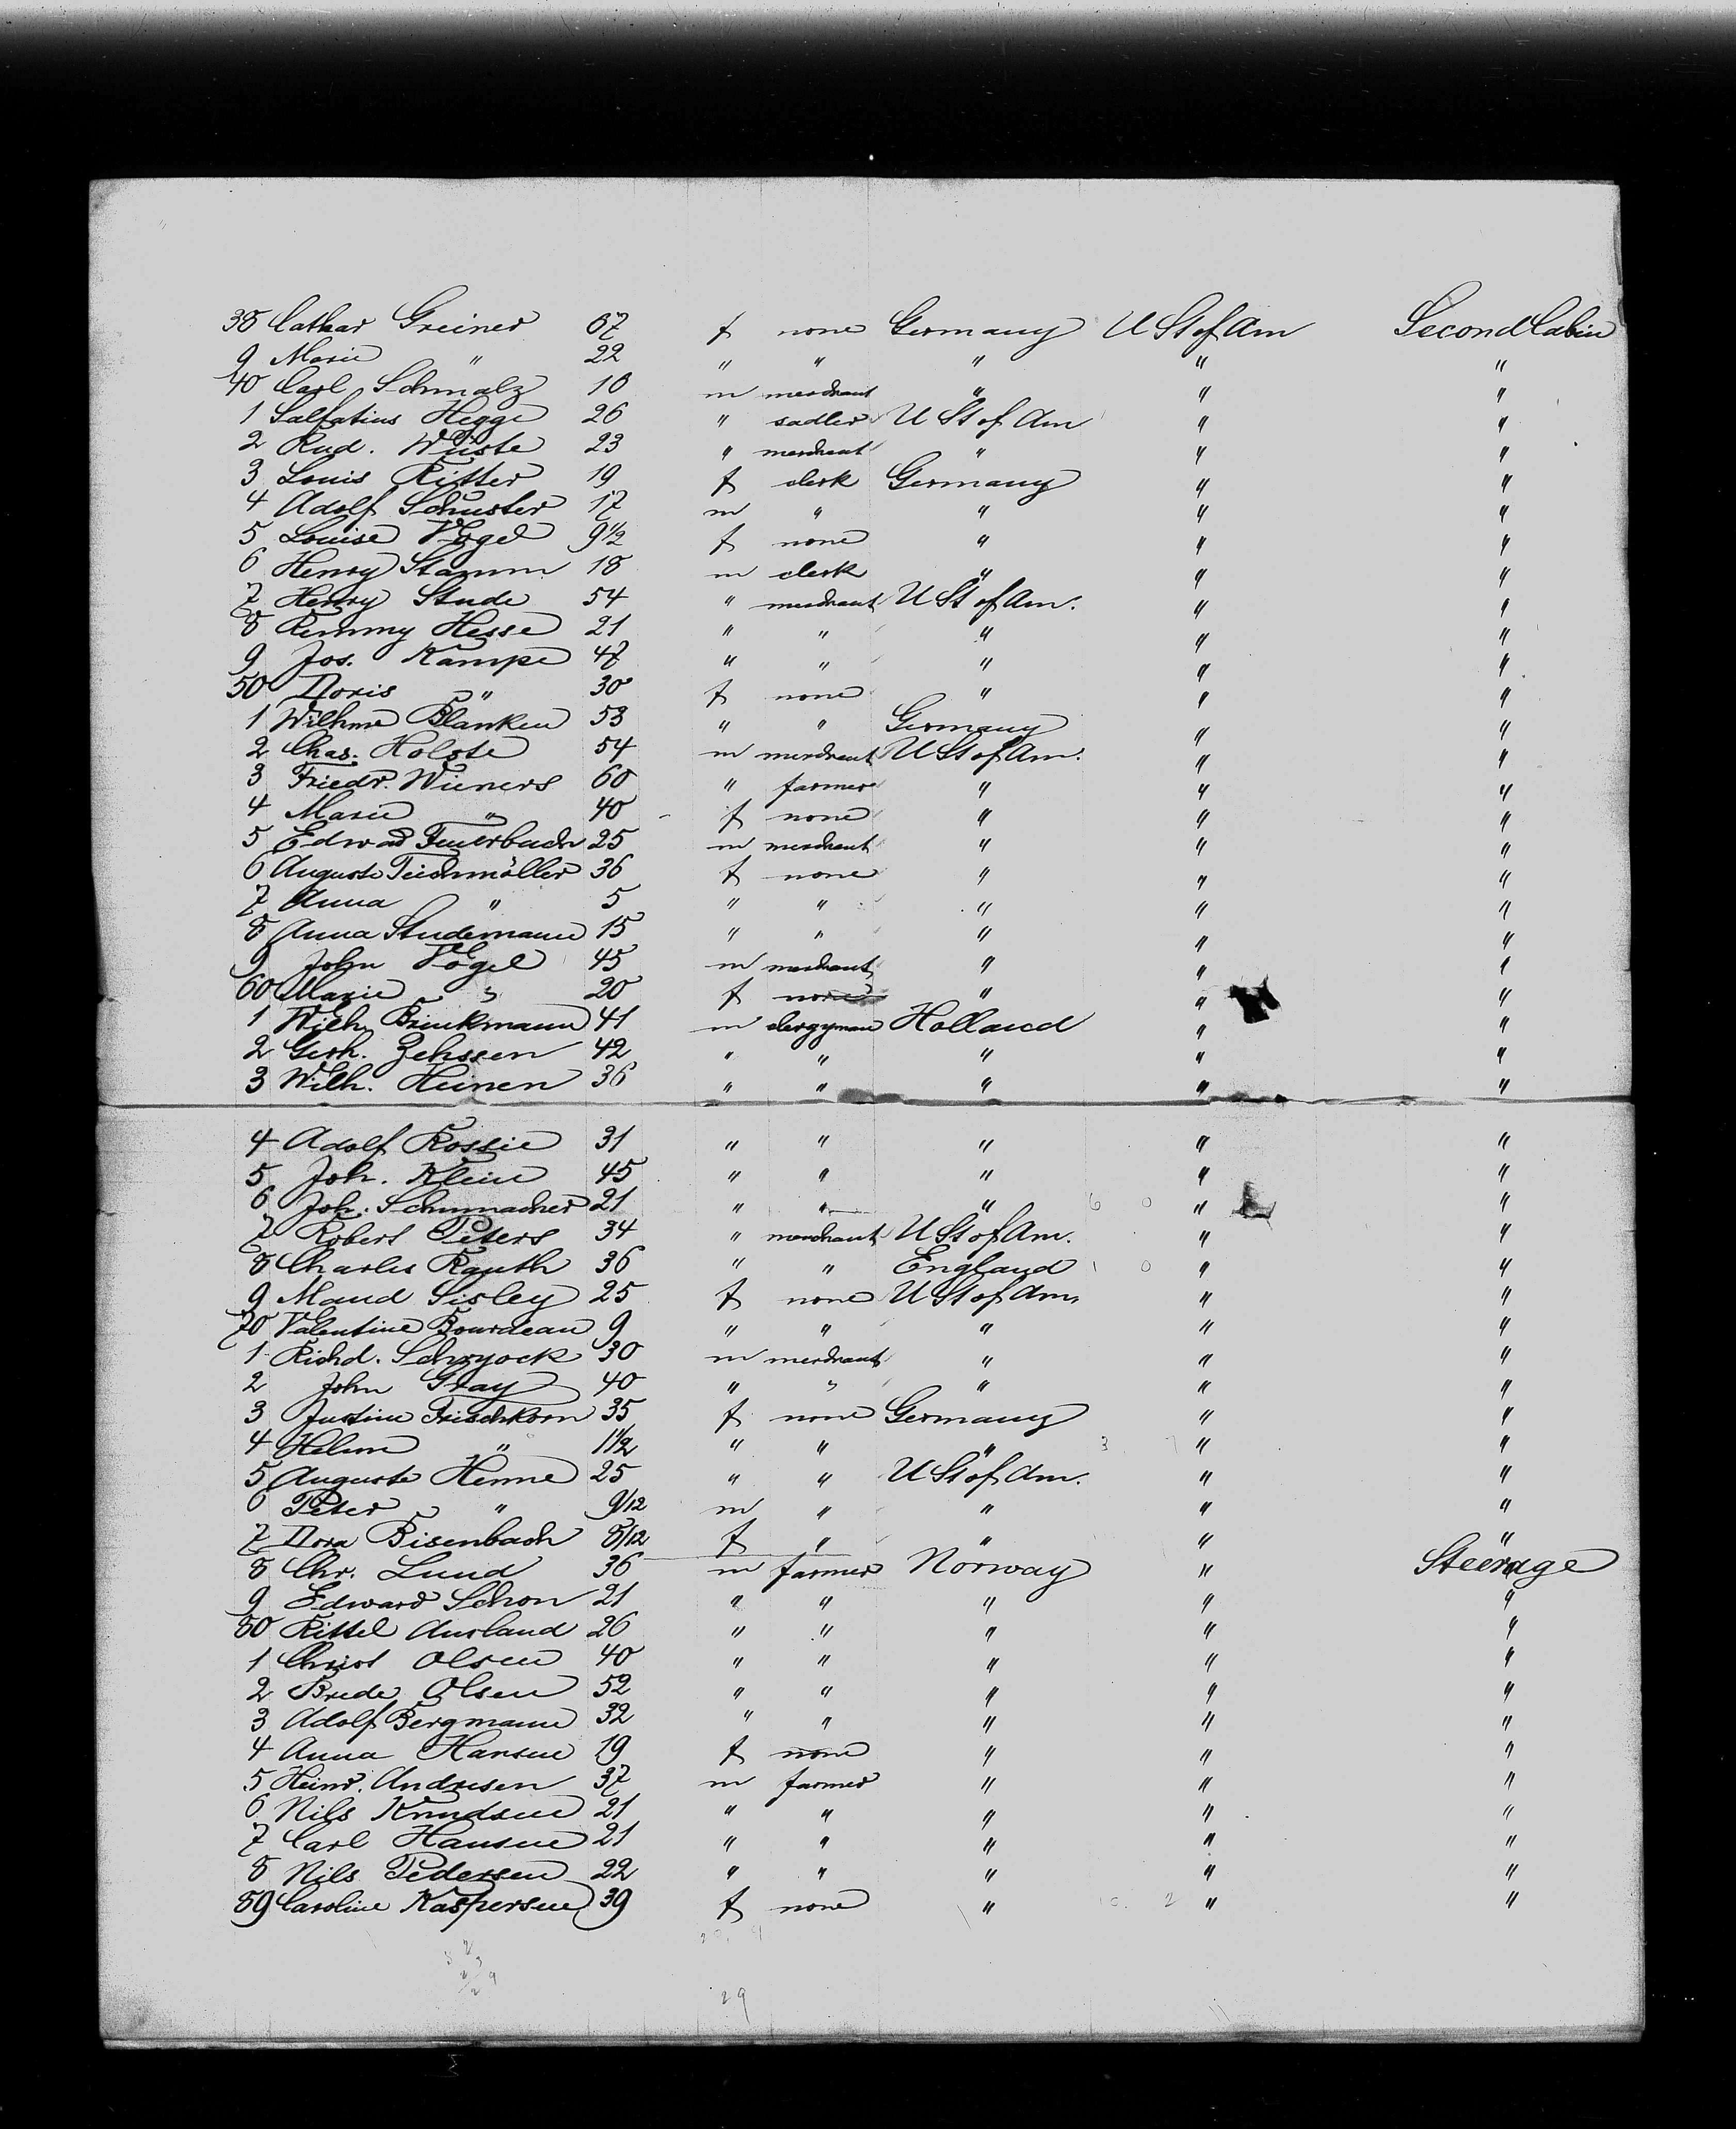 38 Cathar Greiner 67 f none Germany U St of Am Second Cabin
9 Marie " 22 " " " " "
40 Carl Schmalz 18 m merchant " " "
1 Salfatius Hegge 26 " sadler U St of Am " "
2 Rud. Wüste 23 " merchant " " "
3 Louis Ritter 19 f clerk Germany " "
4 Adolf Schuster 17 m " " " "
5 Louise Vogel 9½ f none " " "
6 Henry Stamm 18 m clerk " " "
7 Henry Stude 54 " merchant U St of Am. " "
8 Remmy Hesse 21 " " " " "
9 Jos. Kampe 47 " " " " "
50 Doris " 30 f none " " "
1 Wilhme Blanken 53 " " Germany " "
2 Chas. Holste 54 m merchant U St of Am. " "
3 Friedr. Wieners 60 " farmer " " "
4 Marie " 40 f none " " "
5 Edward Feuerbach 25 m merchant " " "
6 Auguste Teichmöller 36 f none " " "
7 Anna " 5 " " " " "
8 Anna Studemann 15 " " " " "
9 John Vogel 45 m merchant " " "
60 Marie " 20 f none " " "
1 Wilh. Brinkmann 41 m clergyman Holland " "
2 Gerh. Zehssen 42 " " " " "
3 Wilh. Heinen 36 " " " " "
4 Adolf Rossie 31 " " " " "
5 Joh. Klein 45 " " " " "
6 Joh. Schumacher 21 " " " 6 0 " "
7 Robert Peters 34 " merchant U St of Am. " "
8 Charles Rauth 36 " " England 1 0 " "
9 Maud Sisley 25 f none U St of Am. " "
70 Valentine Bourdeau 9 " " " " "
1 Richd. Schryock 30 m merchant " " "
2 John Gray 40 " " " " "
3 Justine Frischkorn 35 f none Germany " "
4 Helene " 1½ " " " 3 7 " "
5 Auguste Henne 25 " " U St of Am. " "
6 Peter " 9/12 m " " " "
7 Dora Bisenbach 8/12 f " " " "
8 Chr. Lund 36 m farmer Norway " Steerage
9 Edward Schon 21 " " " " "
80 Kittel Aurland 26 " " " " "
1 Christ Olsen 40 " " " " "
2 Brede Olsen 52 " " " " "
3 Adolf Bergmann 32 " " " " "
4 Anna Hansen 19 f none " " "
5 Heinr. Andresen 37 m farmer " " "
6 Nils Knudsen 21 " " " " "
7 Carl Hansen 21 " " " " "
8 Nils Pedersen 22 " " " " "
89 Caroline Kaspersen 39 f none " 2 " "
29